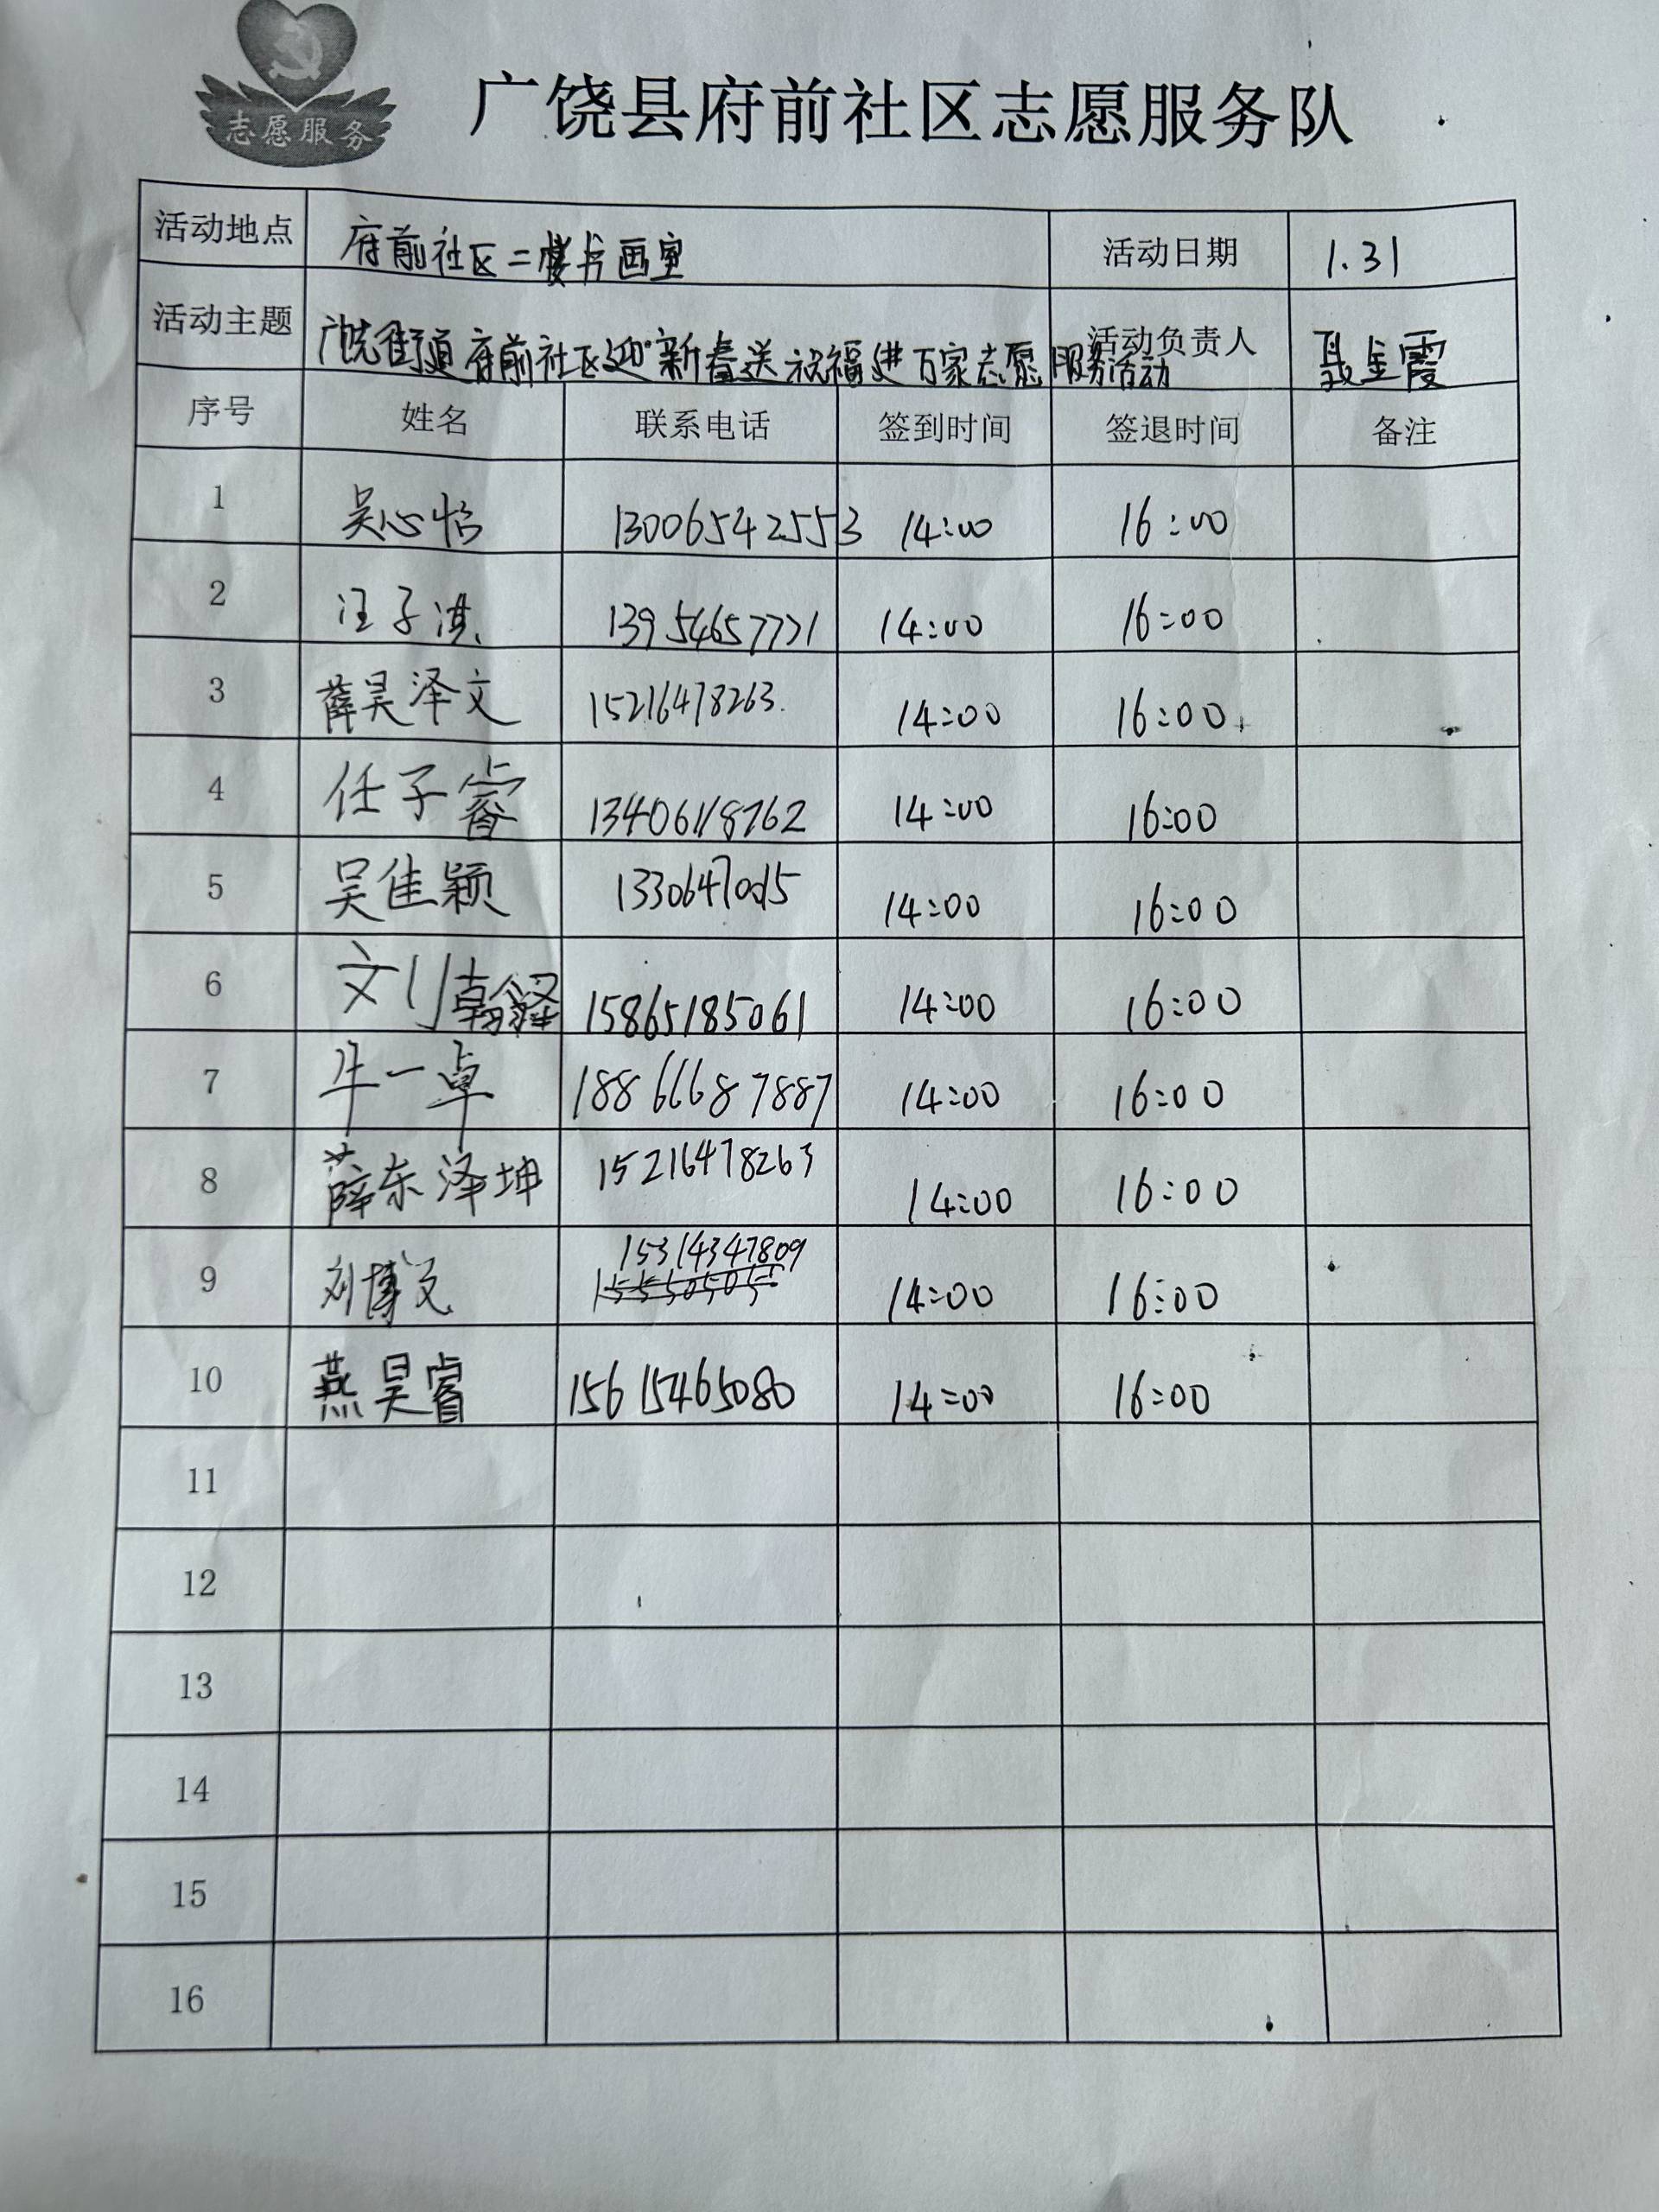 志愿服务
广饶县府前社区志愿服务队
活动地点 府前社区二楼书画室 活动日期 1.31
活动主题 广饶街道府前社区迎新春送祝福进万家志愿服务活动 活动负责人 聂金霞
序号 姓名 联系电话 签到时间 签退时间 备注
1 吴心怡 13006542553 14:00 16:00
2 汪子淇 13954657771 14:00 16:00
3 薛昊泽文 15216478263 14:00 16:00
4 任子睿 13406118762 14:00 16:00
5 吴佳颖 14:00 16:00
6 刘翰泽 15865185061 14:00 16:00
7 牛一卓 18866687887 14:00 16:00
8 薛东泽坤 15216478263 14:00 16:00
9 刘博文 15314347809 14:00 16:00
10 燕昊睿 15615465080 14:00 16:00
11
12
13
14
15
16